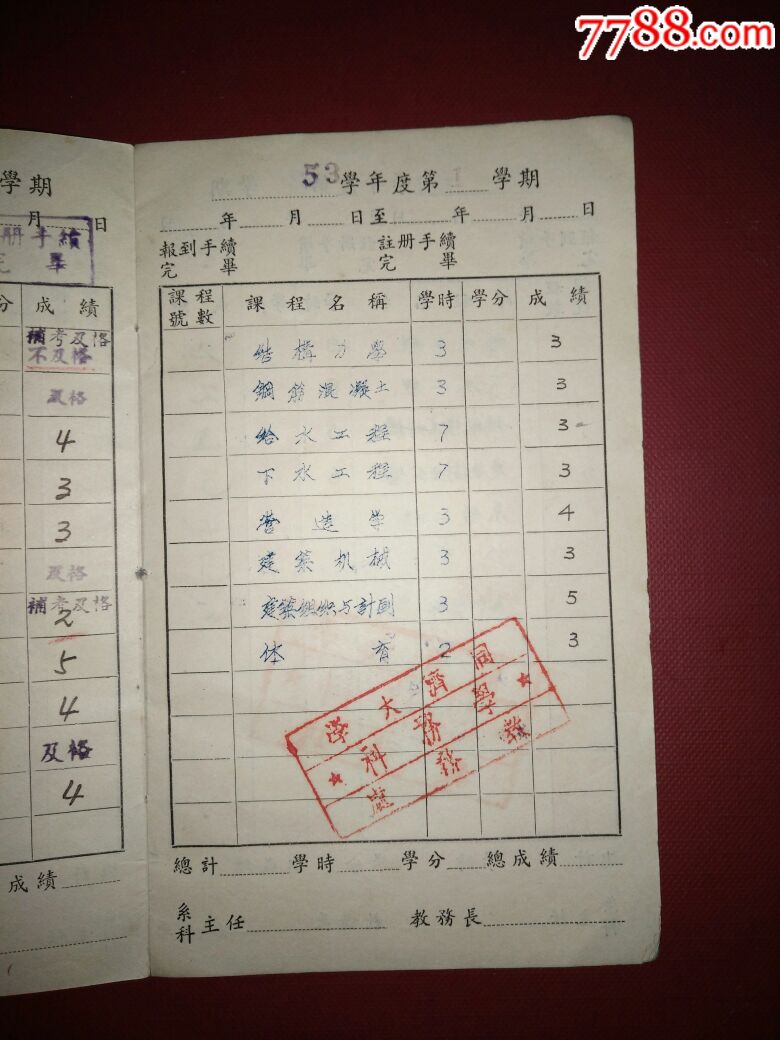 7788.com
學期
月 日
册手續
完 畢
分 成績
補考及格
不及格
及格
4
3
3
及格
補考及格
2
5
4
及格
4
成績
53學年度第I學期
年 月 日至 年 月 日
報到手續完畢 註册手續完畢
課程號數 課程名稱 學時 學分 成績
結構力學 3 3
鋼筋混凝土 3 3
給水工程 7 3
下水工程 7 3
營造学 3 4
建築机械 3 3
建築組织与計劃 3 5
体育 2 3
同濟大學
★學務科★
教務處
總計 學時 學分 總成績
系科主任 教務長